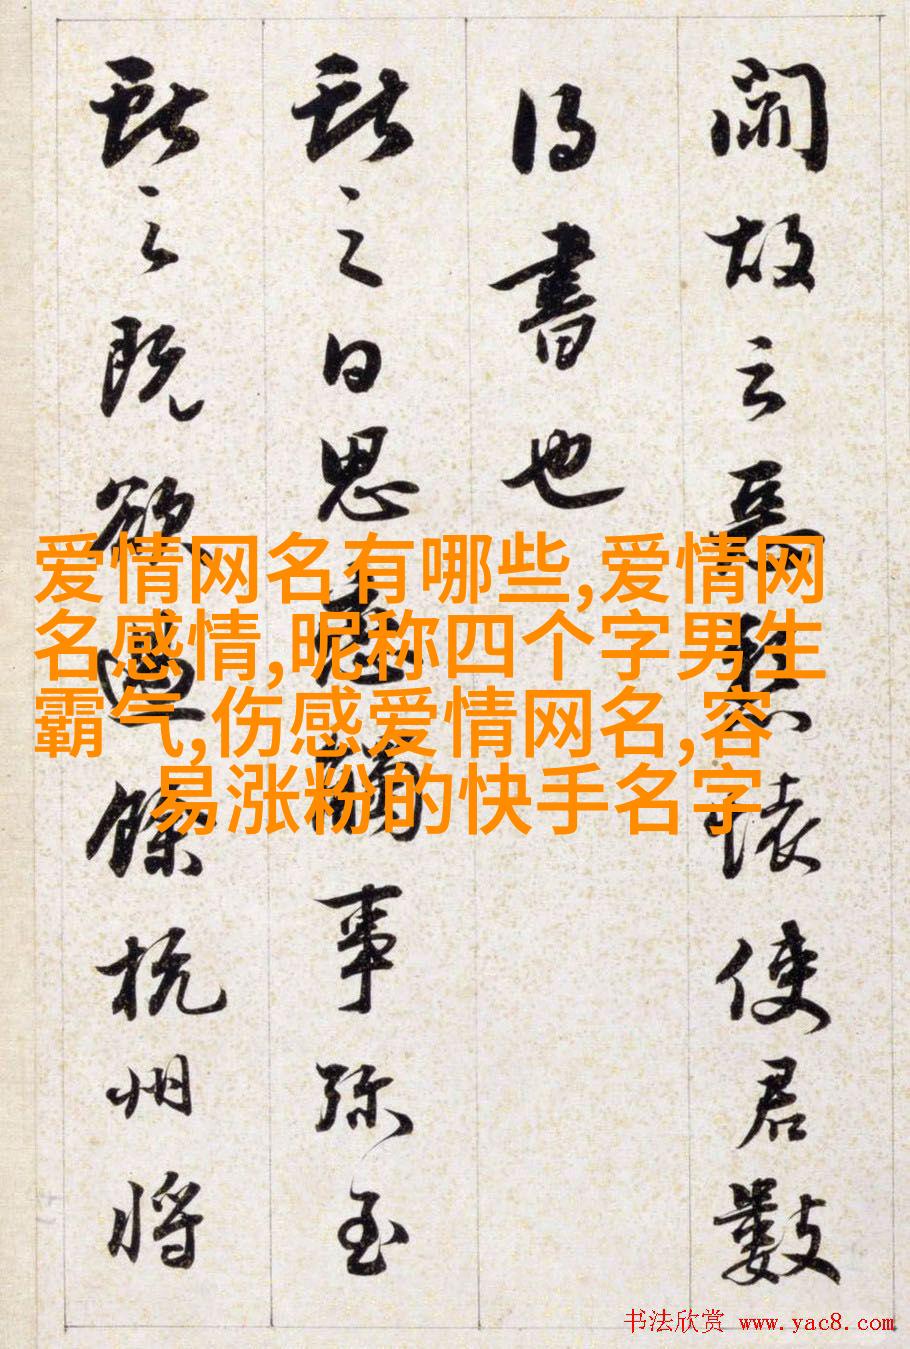 故云使君數
得書也
之日思事弥至
之既欲過餘杭州將
爱情网名有哪些,爱情网
名感情,昵称四个字男生
霸气,伤感爱情网名,容
易涨粉的快手名字
书法欣赏 www.yac8.com